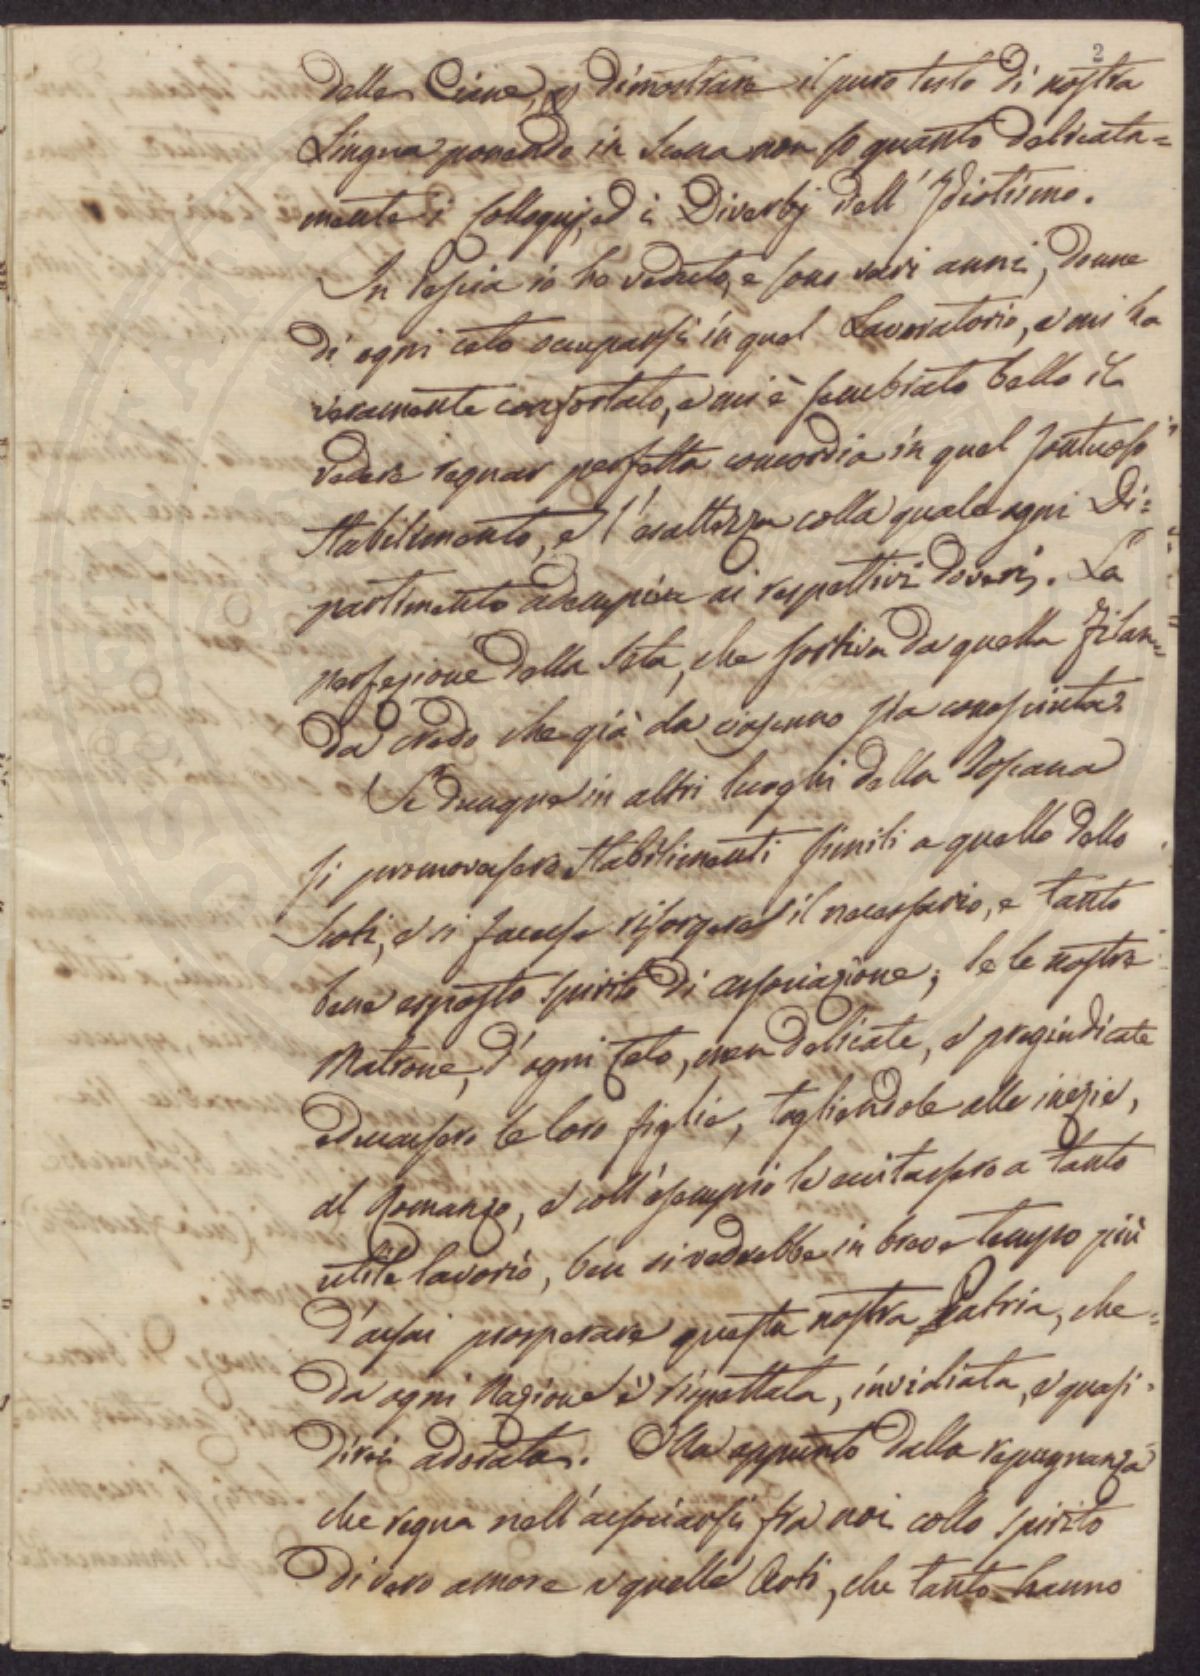 2
delle Ciane, e dimostrare il puro testo di nostra
Lingua ponendo in Scena non so quanto delicata=
mente i Colloquj, ed i Diverbj dell' Idiotismo.
In Pescia io ho veduto, e sono varj anni, donne
di ogni ceto occuparsi in quel Lavoratorio, e mi ha
veramente confortato, e mi è sembrato bello il
vedere regnar perfetta concordia in quel fruttuoso
Stabilimento, e l'esattezza colla quale ogni Di=
partimento adempiva ai respettivi doveri. La
perfezione della Seta, che sortiva da quella Filan=
da credo che già da ciascuno sia conosciuta.
Se dunque in altri luoghi della Toscana
si promovessero Stabilimenti simili a quello dello
Scoti, e si facesse risorgere il necessario, e tanto
bene esposto spirito di associazione; se le nostre
Matrone, d'ogni Ceto, men delicate, e pregiudicate
educassero le loro figlie, togliendole alle inezie,
al Romanzo, e coll'esempio le eccitassero a tanto
utile lavorio, ben si vedrebbe in breve tempo più
d'assai prosperare questa nostra Patria, che
da ogni Nazione è rispettata, invidiata, e quasi
direi adorata. Ma appunto dalla repugnanza
che regna nell'associarsi fra noi collo spirito
di vero amore a quelle Arti, che tanto hanno